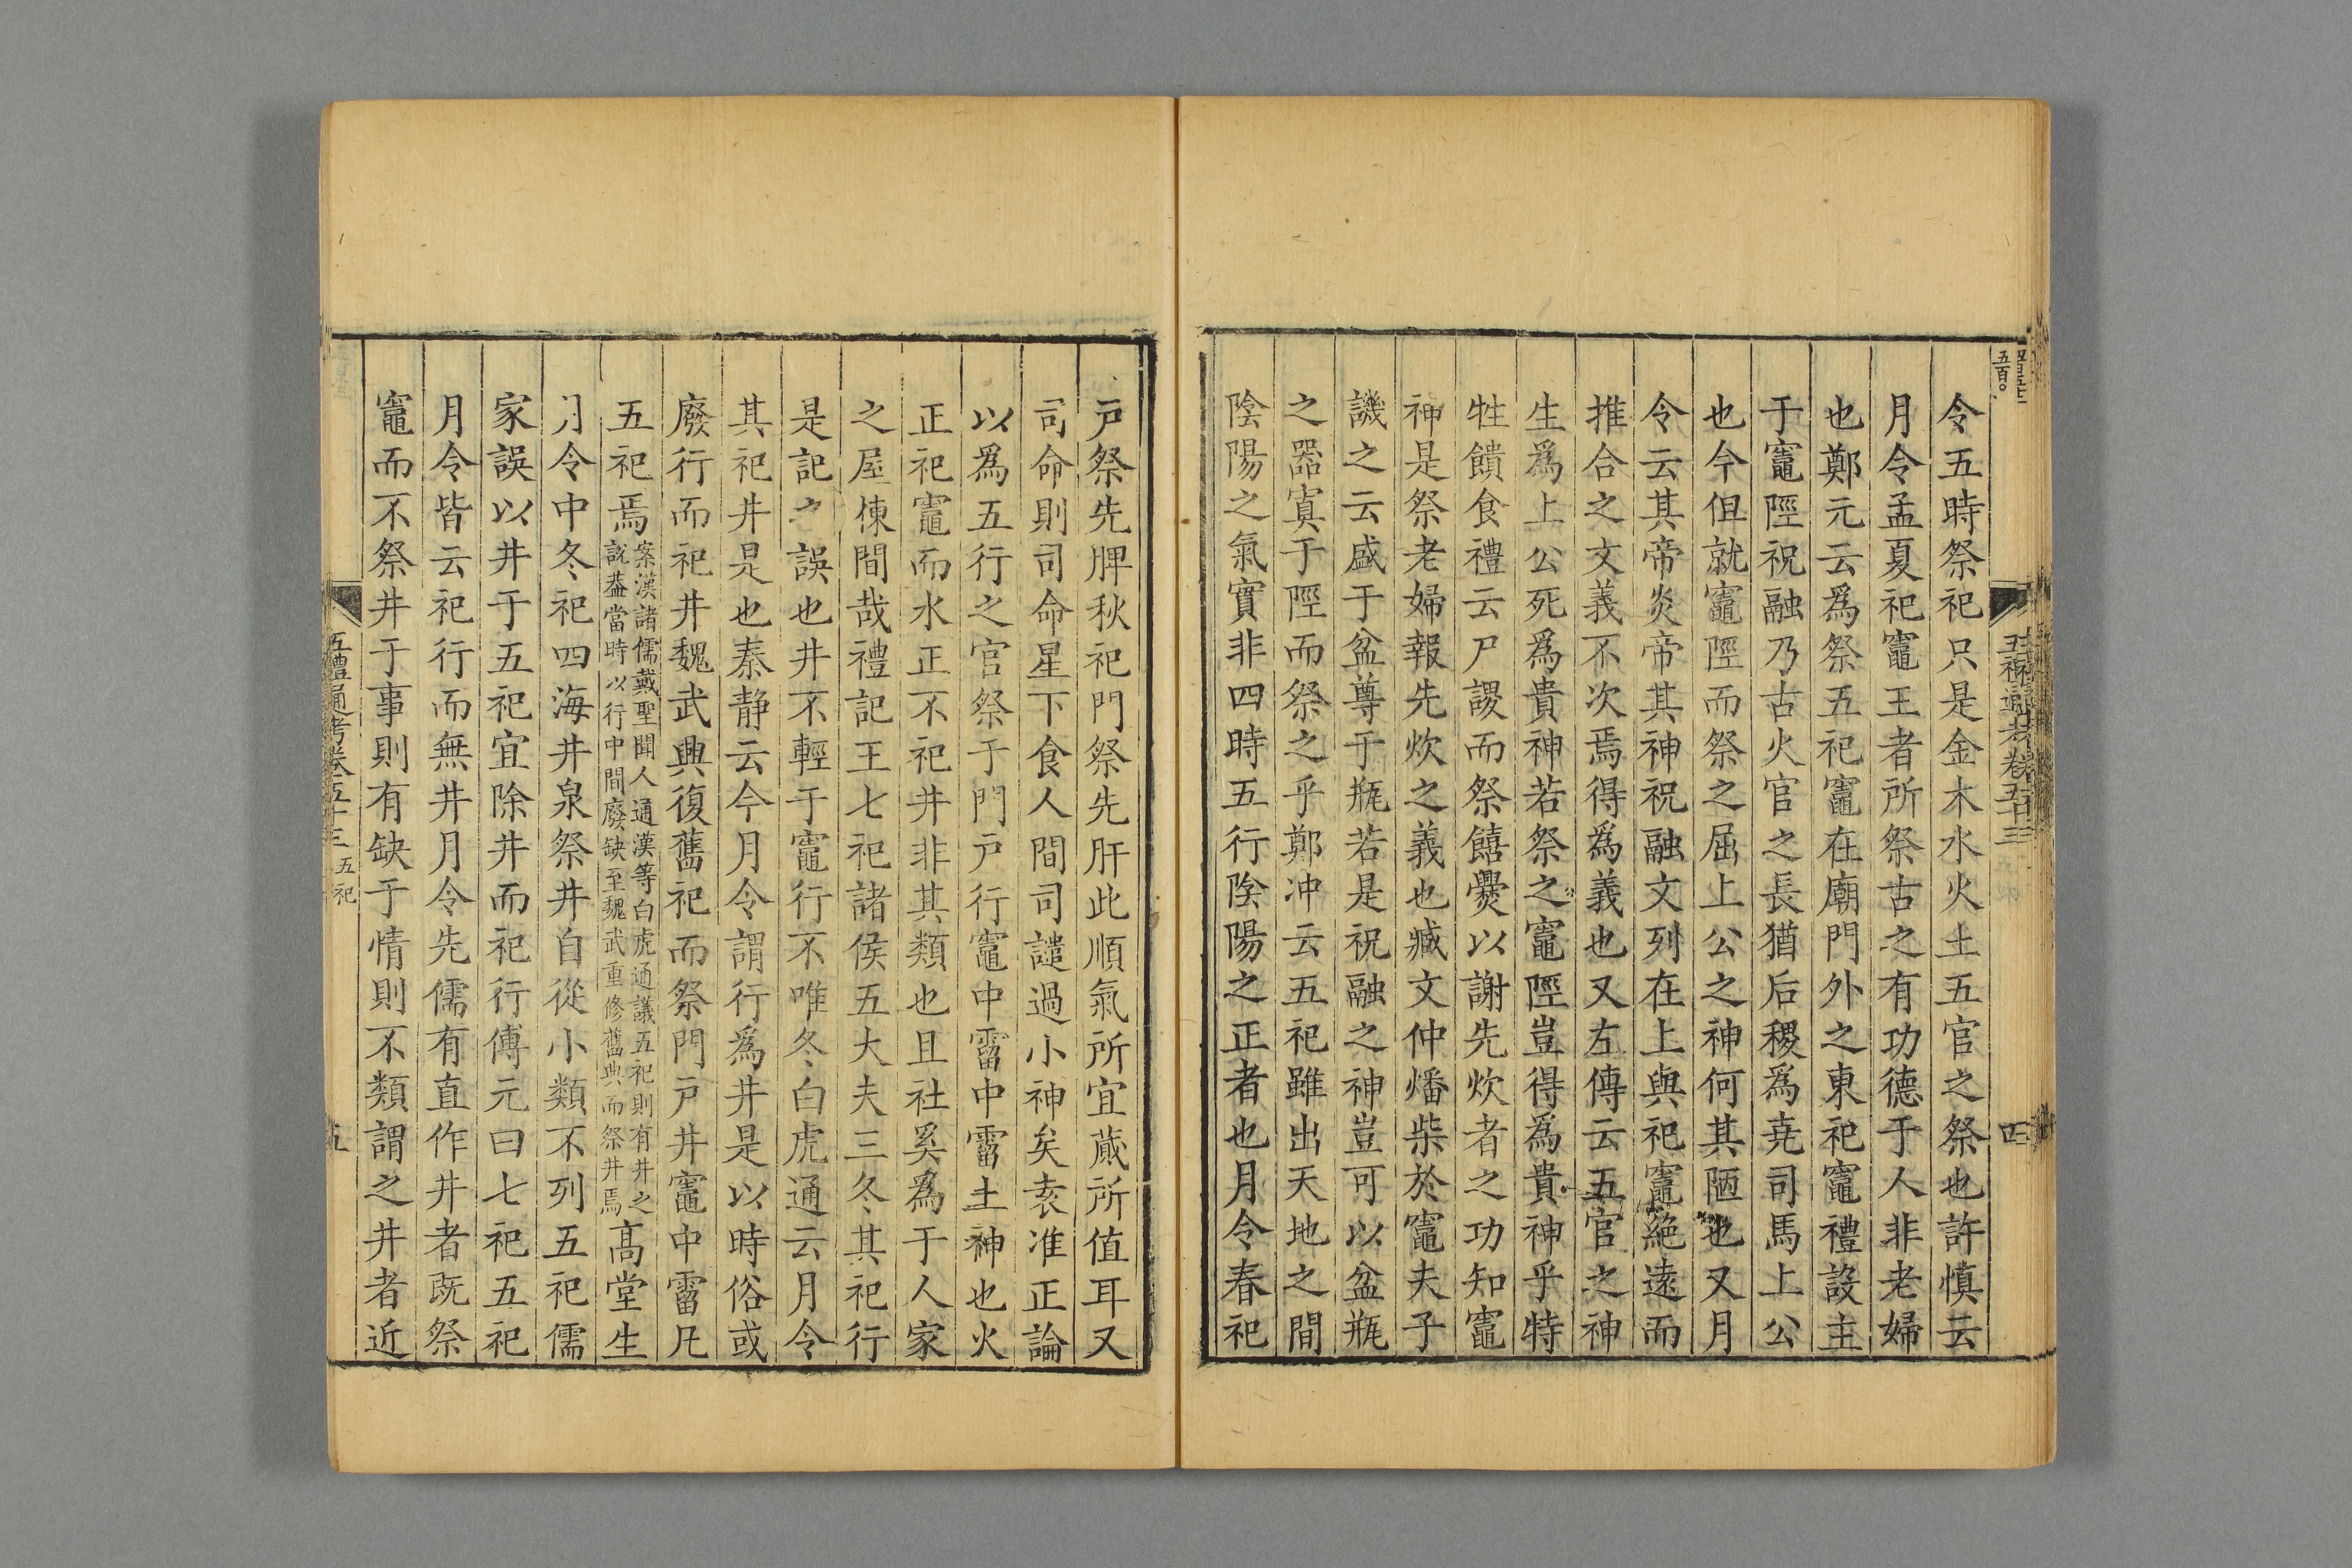 五禮通考卷五十三
四
令五時祭祀只是金木水火土五官之祭也許慎云
月令孟夏祀竈王者所祭古之有功德于人非老婦
也鄭元云爲祭五祀竈在廟門外之東祀竈禮設主
于竈陘祝融乃古火官之長猶后稷爲堯司馬上公
也今但就竈陘而祭之屈上公之神何其陋也又月
令云其帝炎帝其神祝融文列在上與祀竈絶遠而
推合之文義不次焉得爲義也又左傳云五官之神
生爲上公死爲貴神若祭之竈陘豈得爲貴神乎特
牲饋食禮云尸謖而祭饎爨以謝先炊者之功知竈
神是祭老婦報先炊之義也臧文仲燔柴於竈夫子
譏之云盛于盆尊于瓶若是祝融之神豈可以盆瓶
之器寘于陘而祭之乎鄭冲云五祀雖出天地之間
陰陽之氣實非四時五行陰陽之正者也月令春祀
戸祭先脾秋祀門祭先肝此順氣所宜蕆所值耳又
司命則司命星下食人間司譴過小神矣袁准正論
以爲五行之官祭于門戸行竈中霤中霤土神也火
正祀竈而水正不祀井非其類也且社奚爲于人家
之屋棟間哉禮記王七祀諸侯五大夫三冬其祀行
是記之誤也井不輕于竈行不唯冬白虎通云月令
其祀井是也秦静云今月令謂行爲井是以時俗或
廢行而祀井魏武興復舊祀而祭門戸井竈中霤凡
五祀焉案漢諸儒戴聖聞人通漢等白虎通議五祀則有井之
說葢當時以行中間廢缺至魏武重修舊典而祭井焉高堂生
月令中冬祀四海井泉祭井自從小類不列五祀儒
家誤以井于五祀宜除井而祀行傅元曰七祀五祀
月令皆云祀行而無井月令先儒有直作井者既祭
竈而不祭井于事則有缺于情則不類謂之井者近
五禮通考卷五十三 五祀
五